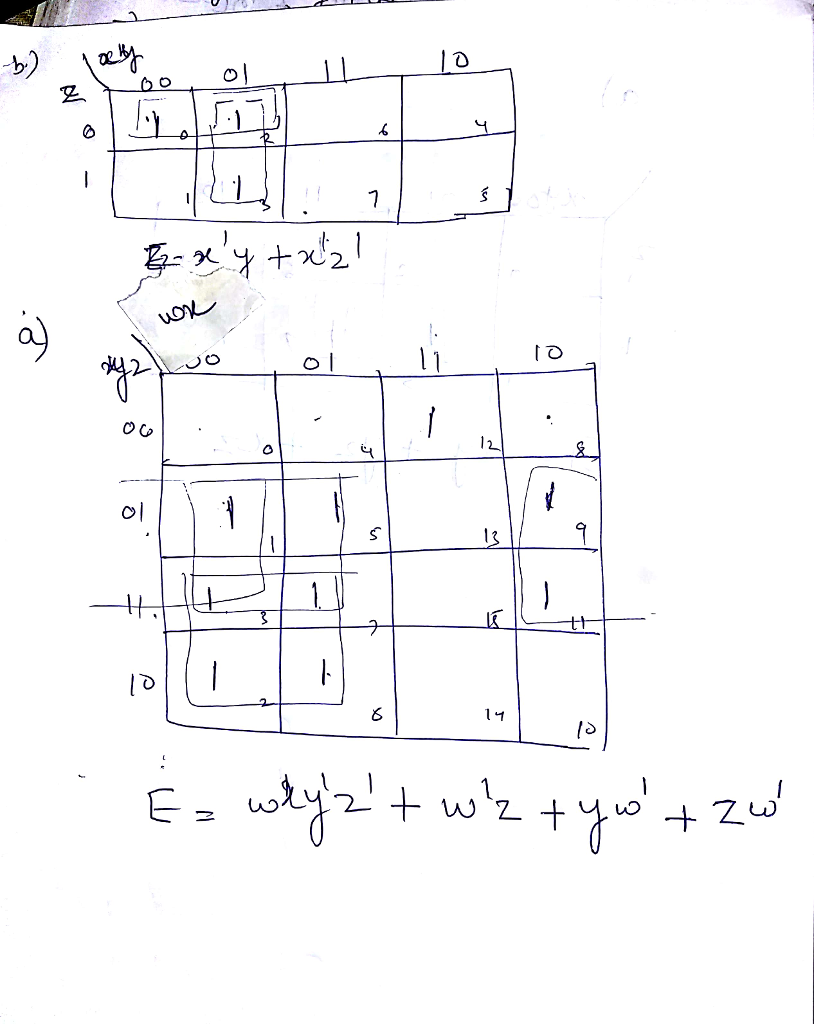 b.) xy
z 00 01 11 10
0 1 0 1 2 6 4
1 1 1 3 7 5
E = x'y + x'z'
a) wx
yz 00 01 11 10
00 0 4 1 12 8
01 1 1 1 5 13 1 9
11 1 3 1 7 15 1 11
10 1 2 1 6 14 10
E = wxy'z' + w'z + yw' + zw'